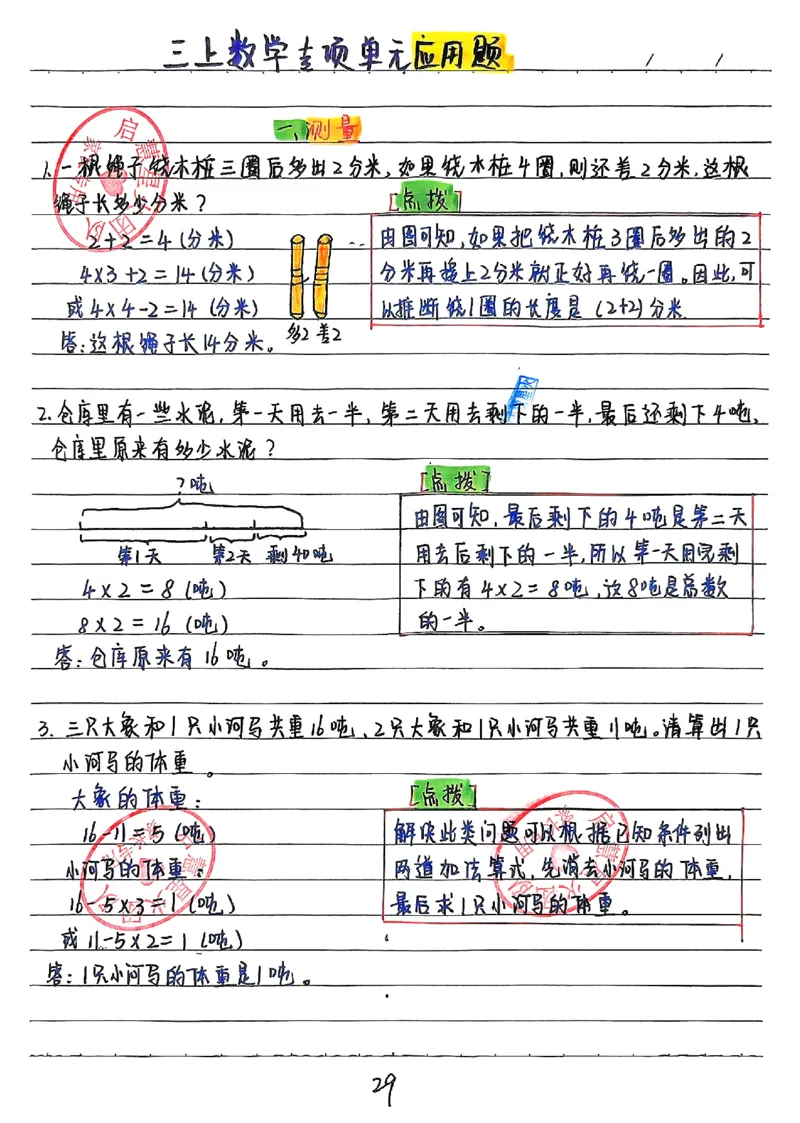 三上数学专项单元应用题
一、测量
1.一根绳子绕木桩三圈后多出2分米,如果绕木桩4圈,则还差2分米,这根
绳子长多少分米?
[点拨]
2+2=4(分米)
4×3+2=14(分米)
或4×4-2=14(分米)
答:这根绳子长14分米。
多2 差2
由图可知,如果把绕木桩3圈后多出的2
分米再接上2分米就正好再绕一圈。因此,可
以推断绕1圈的长度是(2+2)分米
2.仓库里有一些水泥,第一天用去一半,第二天用去剩下的一半,最后还剩下4吨,
仓库里原来有多少水泥?
[点拨]
?吨
第1天 第2天 剩40吨
4×2=8(吨)
8×2=16(吨)
答:仓库原来有16吨。
由图可知,最后剩下的4吨是第二天
用去后剩下的一半,所以第一天用完剩
下的有4×2=8吨,这8吨是总数
的一半。
3.三只大象和1只小河马共重16吨、2只大象和1只小河马共重11吨。请算出1只
小河马的体重。
[点拨]
大象的体重:
16-11=5(吨)
小河马的体重:
16-5×3=1(吨)
或11-5×2=1(吨)
答:1只小河马的体重是1吨。
解决此类问题可以根据已知条件列出
两道加法算式,先消去小河马的体重,
最后求1只小河马的体重。
29